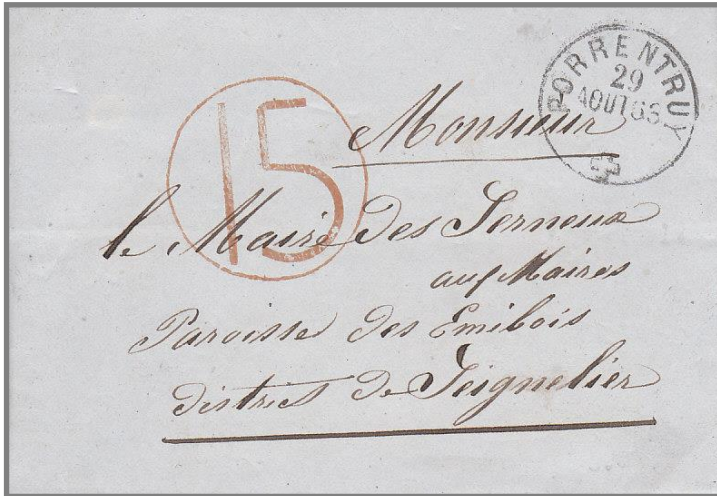 PORRENTRUY
29
AOUT 63
15
Monsieur
le Maire des Serneux
aux Maires
Paroisse des Emibois
district de Seignelier